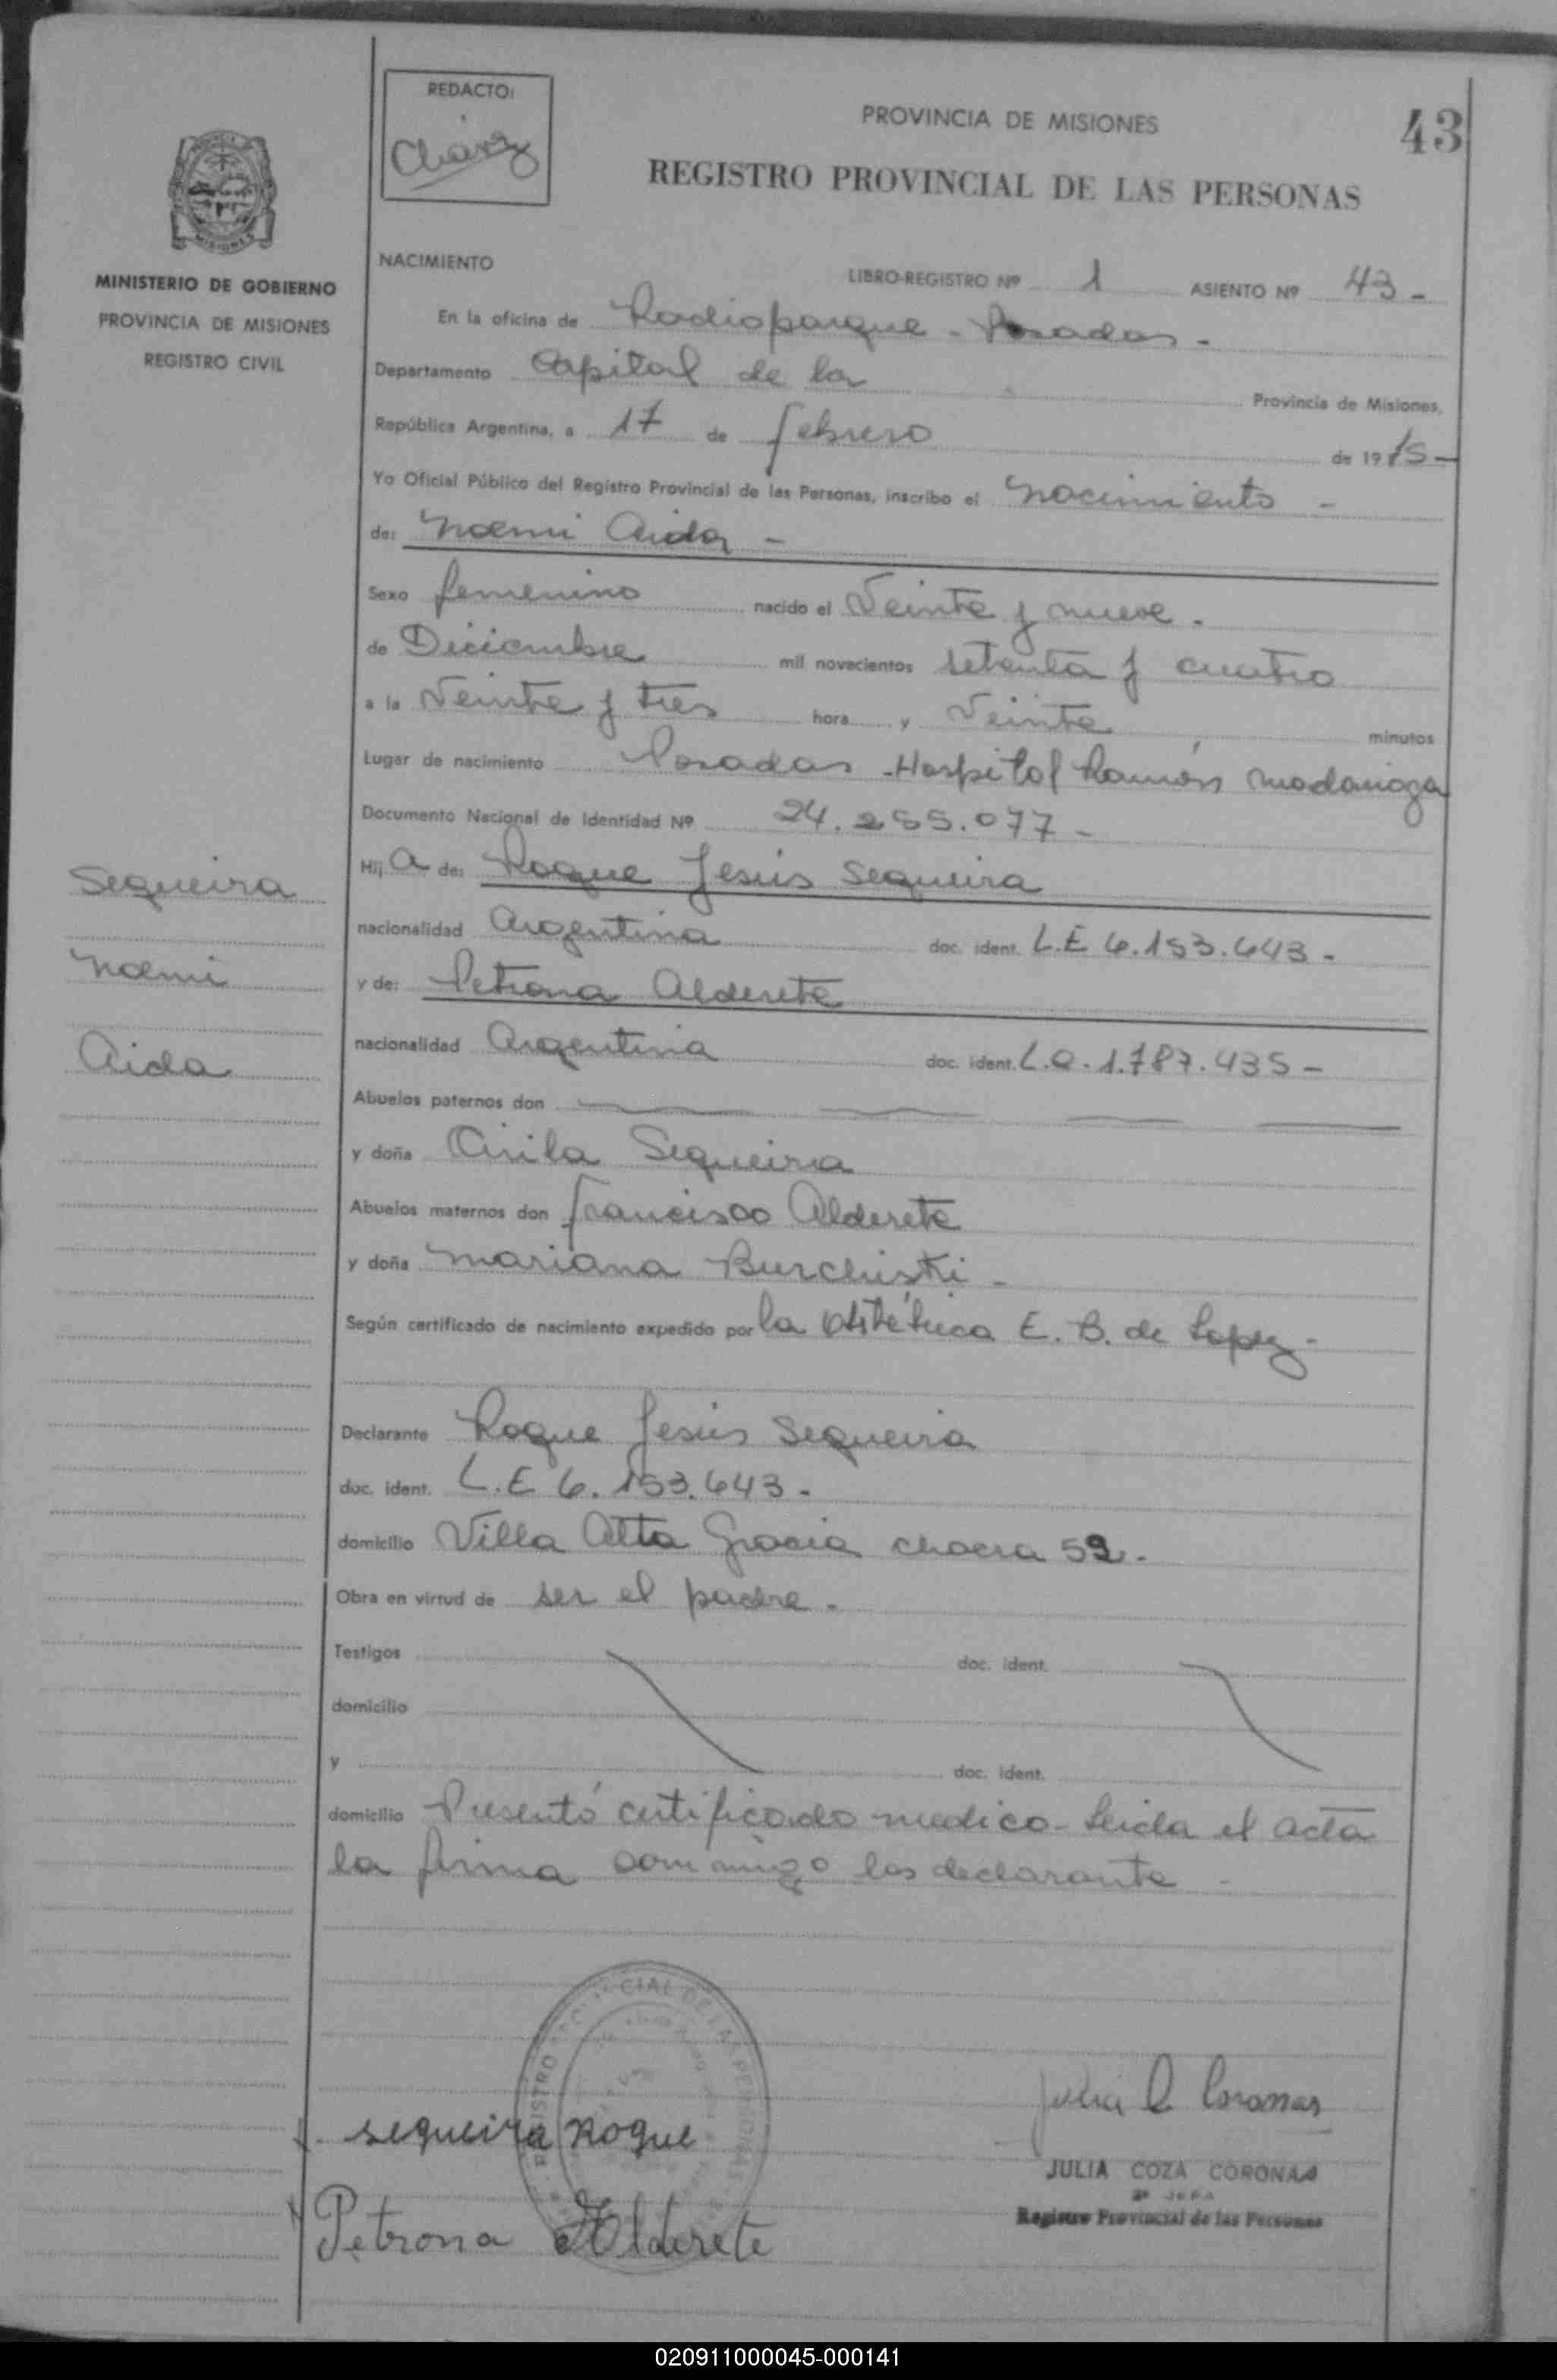 REDACTO:
Chávez
PROVINCIA DE MISIONES
43
REGISTRO PROVINCIAL DE LAS PERSONAS
MISIONES
MINISTERIO DE GOBIERNO
PROVINCIA DE MISIONES
REGISTRO CIVIL
NACIMIENTO
LIBRO-REGISTRO Nº 1 ASIENTO Nº 43 -
En la oficina de Radioparque - Posadas -
Departamento Capital de la Provincia de Misiones,
República Argentina, a 17 de febrero de 1975 -
Yo Oficial Público del Registro Provincial de las Personas, inscribo el nacimiento -
de: Noemi Aida -
Sexo femenino nacido el Veinte y nueve -
de Diciembre mil novecientos setenta y cuatro
a la Veinte y tres hora y Veinte minutos
Lugar de nacimiento Posadas - Hospital Ramón Madariaga
Documento Nacional de Identidad Nº 24.255.077 -
Hij a de: Roque Jesús Sequeira
nacionalidad Argentina doc. ident. L.E 6.153.643 -
y de: Petrona Alderete
nacionalidad Argentina doc. ident. L.C. 1.787.435 -
Abuelos paternos don
y doña Cirila Sequeira
Abuelos maternos don Francisco Alderete
y doña Mariana Burchiski -
Según certificado de nacimiento expedido por la Obstétrica E. B. de Lopez -
Declarante Roque Jesús Sequeira
doc. ident. L.E 6.153.643 -
domicilio Villa Alta Gracia chacra 52 -
Obra en virtud de ser el padre -
Testigos doc. ident.
domicilio
y doc. ident.
domicilio Presentó certificado medico - Leida el acta
la firma conmigo los declarante -
Sequeira
Noemi
Aida
sequeira Roque
Petrona Alderete
Julia C Coronas
JULIA COZA CORONAS
Registro Provincial de las Personas
020911000045-000141